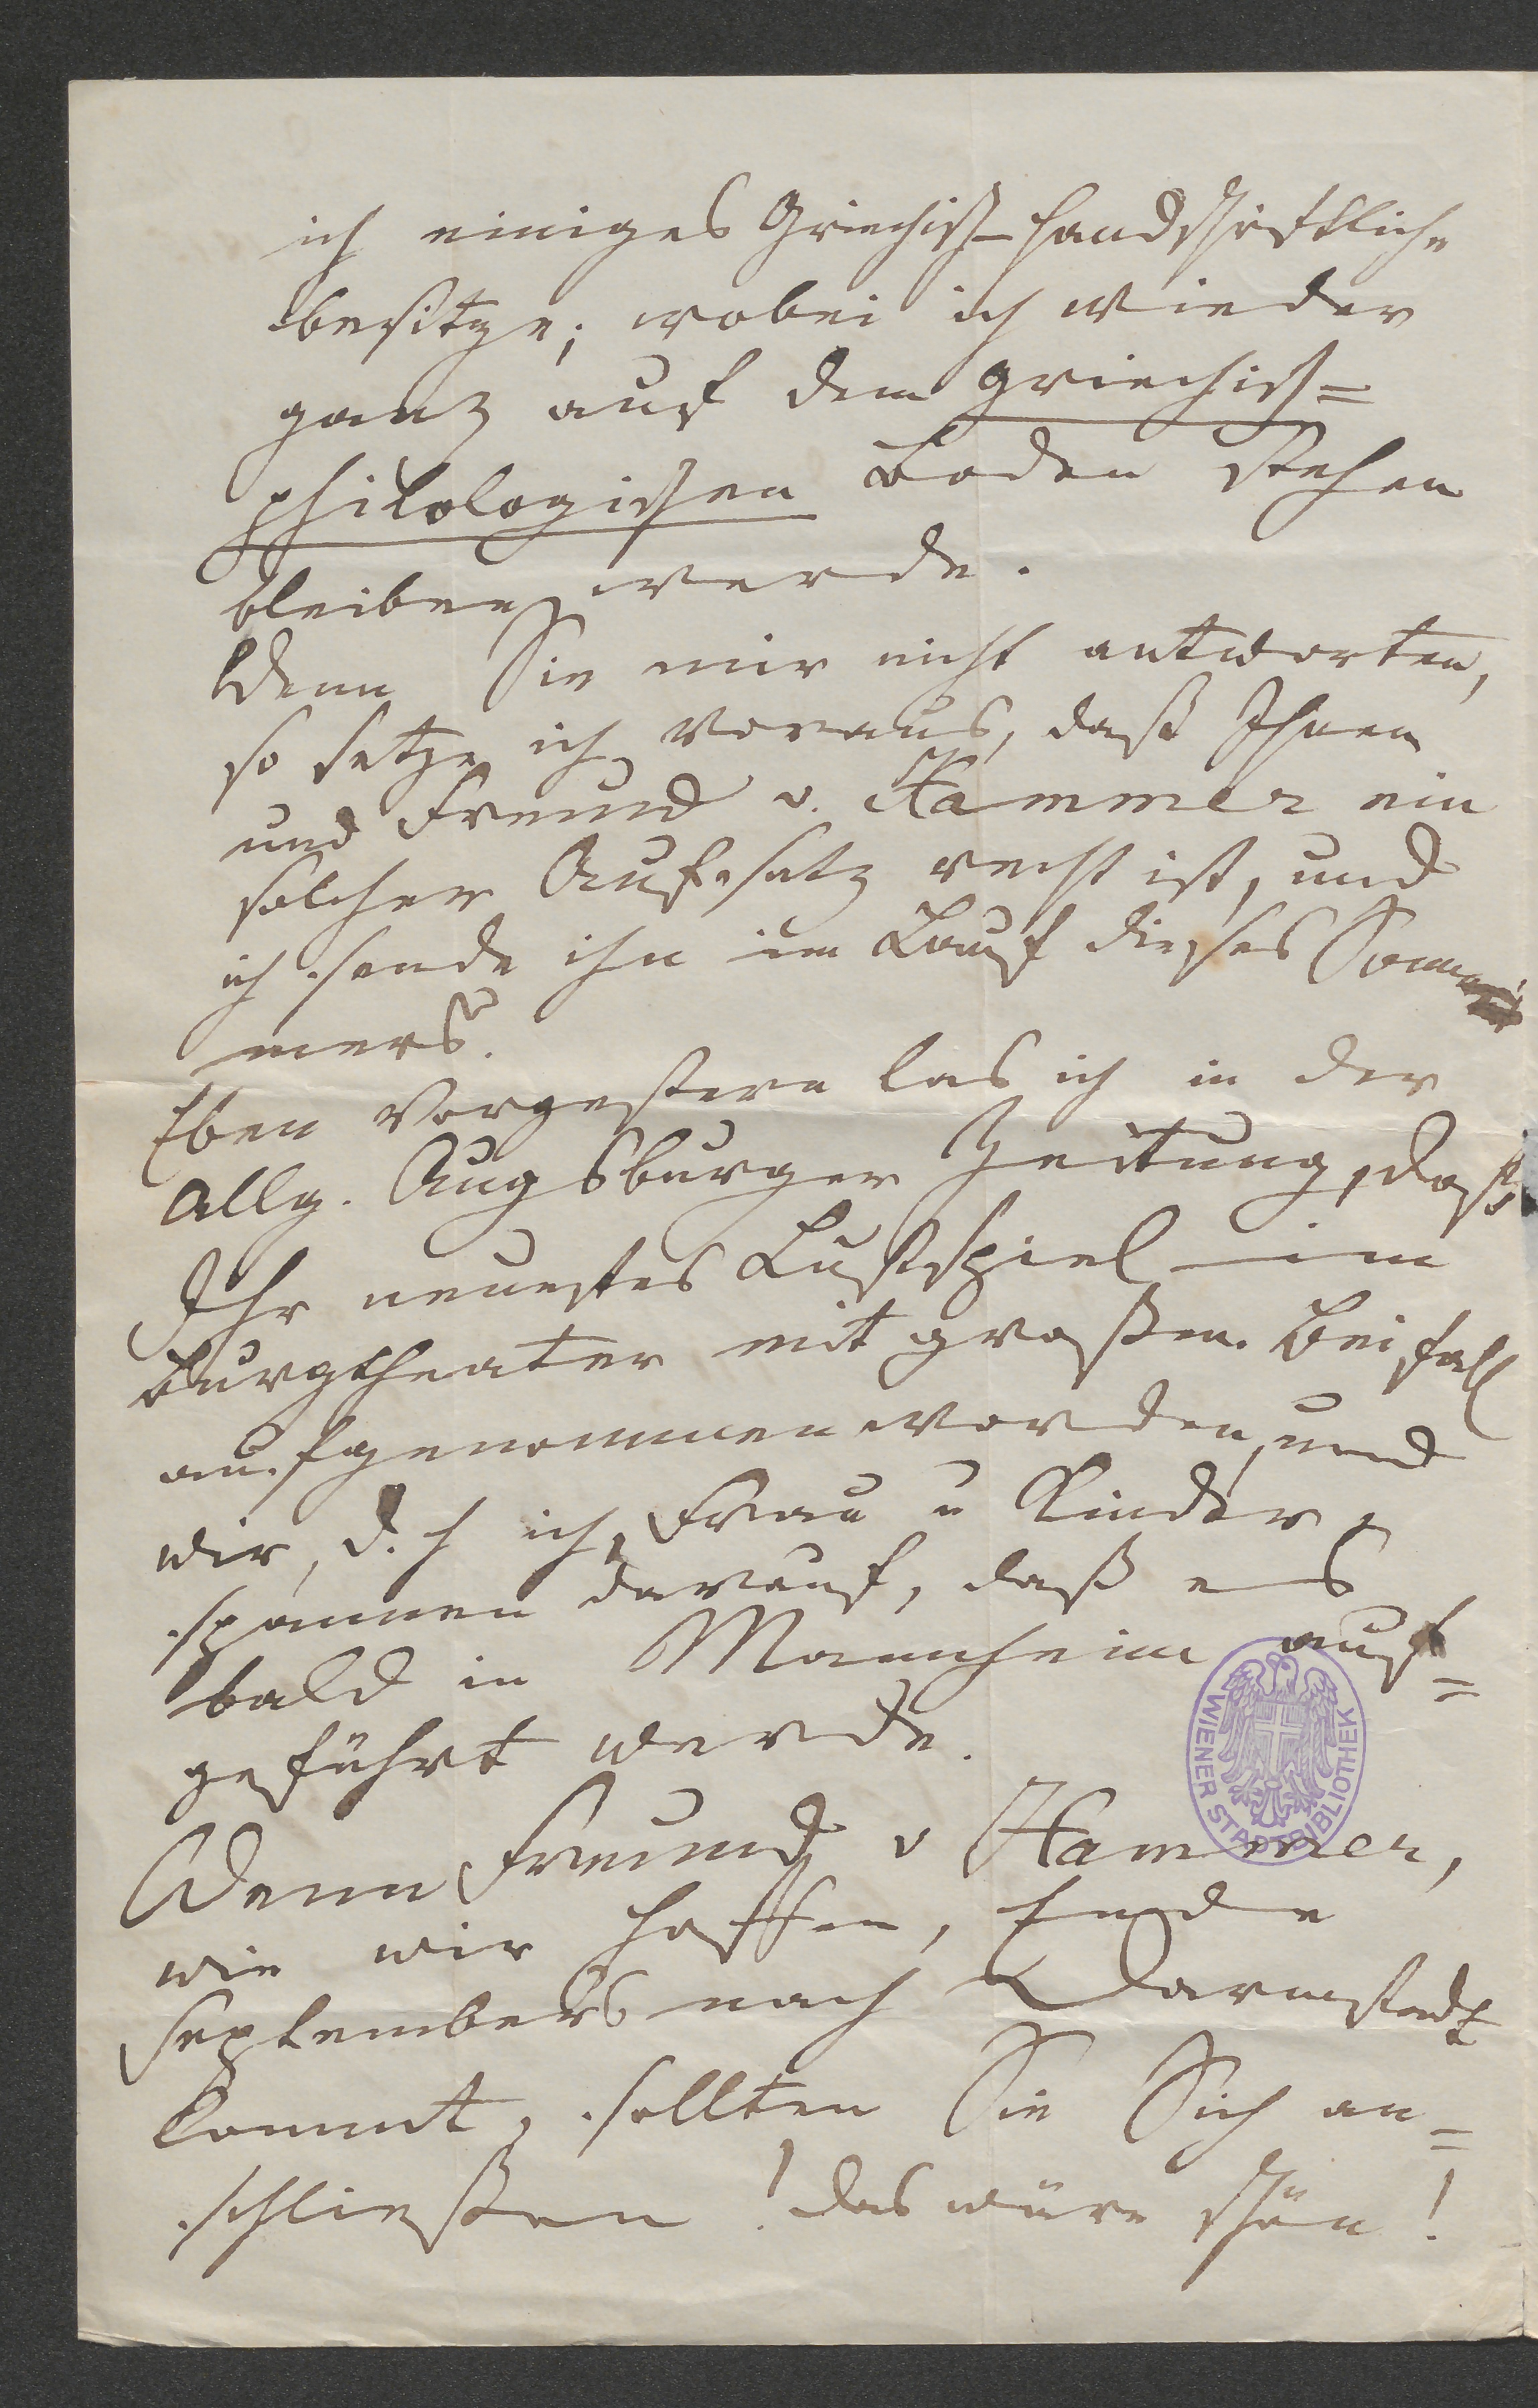 ich einiges Griechisch-handschriftliche
besitze; wobei ich wieder
ganz auf dem griechisch=
philologischen Boden stehen
bleiben werde.
Wenn Sie mir nicht antworten,
so setze ich voraus, daß Ihnen
und Freund v. Hammer ein
solcher Aufsatz recht ist, und
ich sende ihn im Lauf dieses Som
mers.
Eben vorgestern las ich in der
Allg. Augsburger Zeitung, daß
Ihr neuestes Lustspiel im
Burgtheater mit großem Beifall
aufgenommen worden, und
wir, d. h ich, Frau u Kinder,
spannen darauf, daß es
bald in Mannheim auf=
geführt werde.
Wenn Freund v Hammer,
wie wir hoffen, Ende
Septembers nach Darmstadt
kommt, sollten Sie Sich an=
schließen! das wäre schön!
WIENER STADTBIBLIOTHEK